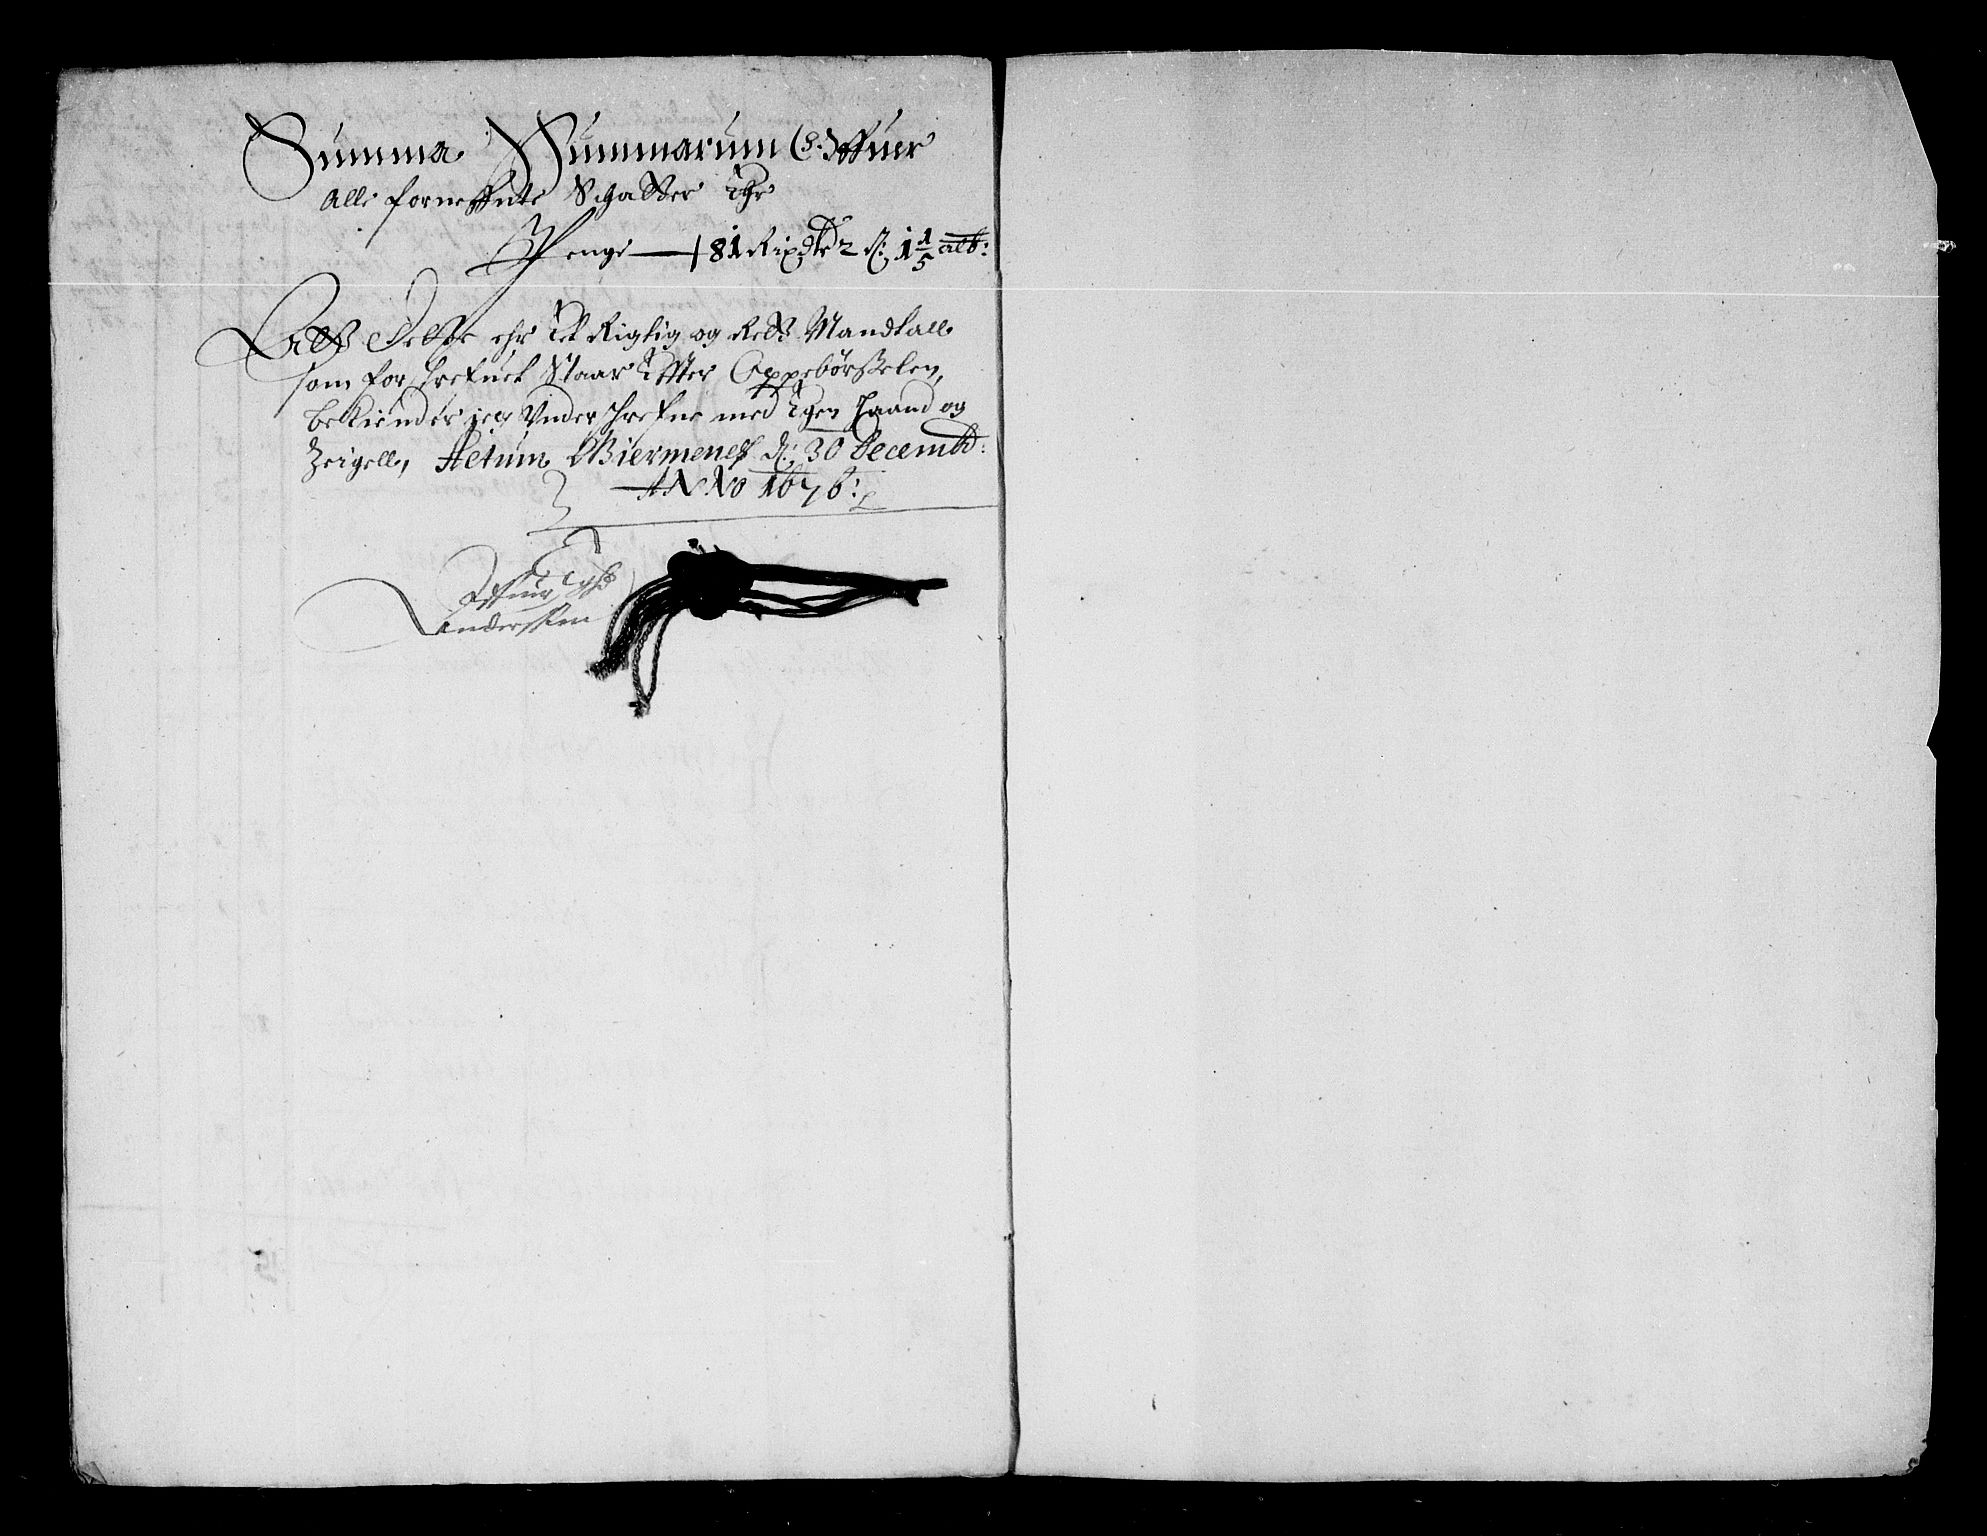 Summa Summarum Offuer
Alle forneffnte Schatter Ehr
Penge — 181 Rixdlr 2 ꝶ: 1 1/5 alb:
Att Dette ehr Et Rigtig og Rett Mandtall
som forschrefuet Staar Effter Oppebörsselen,
bekiender jeg Underschrefne med Egen Haand og
Zeigell, Actum Biermenes d: 30 Decembr:
ANNO 1676:
Anderssen